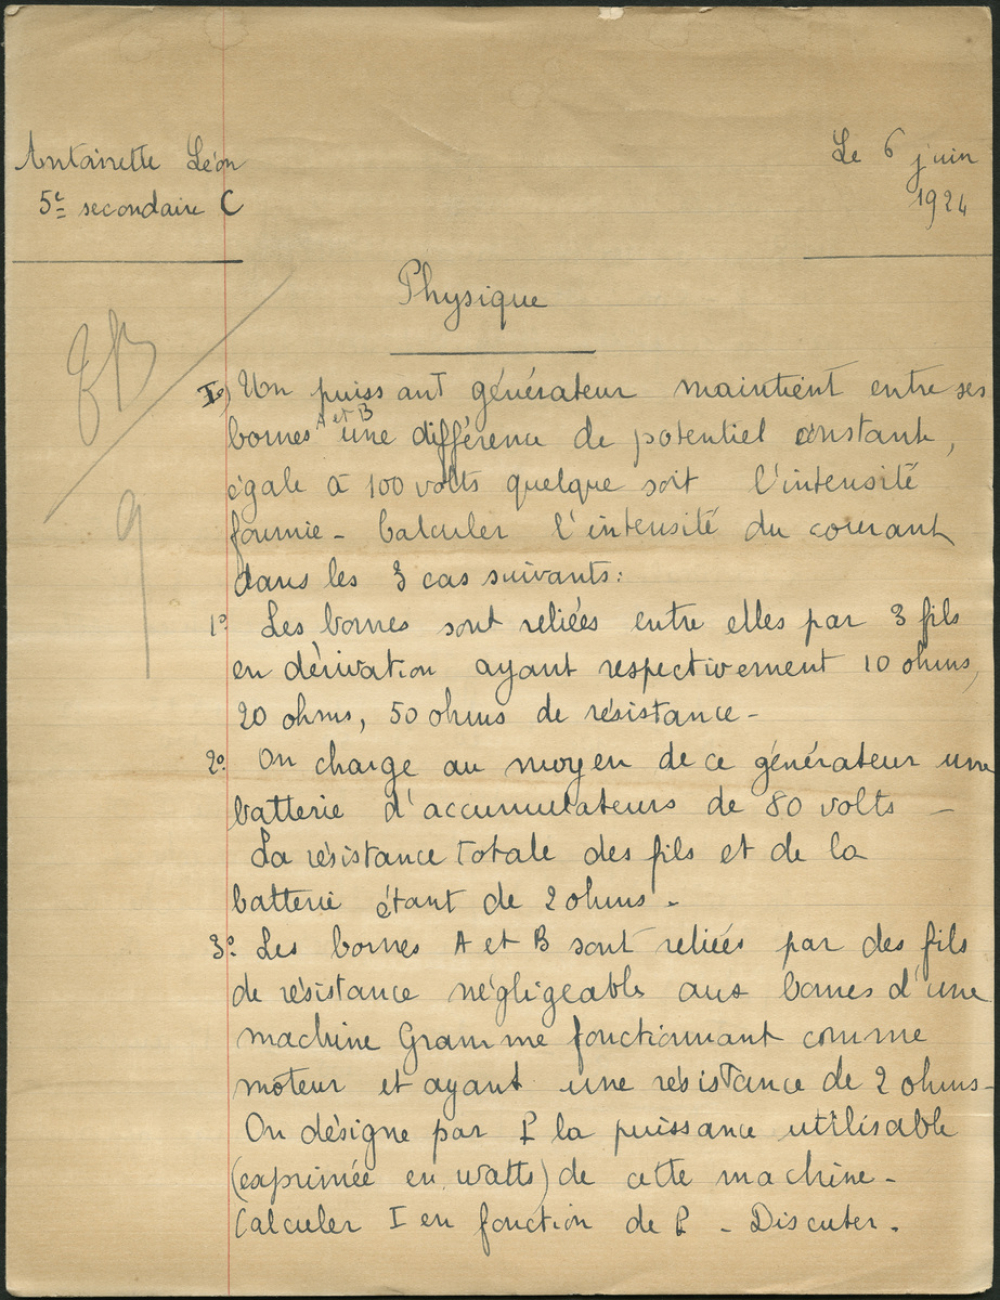 Antoinette Léon
5e secondaire C
Le 6 juin
1924
Physique
TB
9
I°) Un puissant générateur maintient entre ses
bornes A et B une différence de potentiel constante,
égale à 100 volts quelque soit l'intensité
fournie - Calculer l'intensité du courant
dans les 3 cas suivants:
1° Les bornes sont reliées entre elles par 3 fils
en dérivation ayant respectivement 10 ohms,
20 ohms, 50 ohms de résistance -
2° On charge au moyen de ce générateur une
batterie d'accumulateurs de 80 volts -
La résistance totale des fils et de la
batterie étant de 2 ohms -
3° Les bornes A et B sont reliées par des fils
de résistance négligeable aux bornes d'une
machine Gramme fonctionnant comme
moteur et ayant une résistance de 2 ohms -
On désigne par P la puissance utilisable
(exprimée en watts) de cette machine -
Calculer I en fonction de P - Discuter.